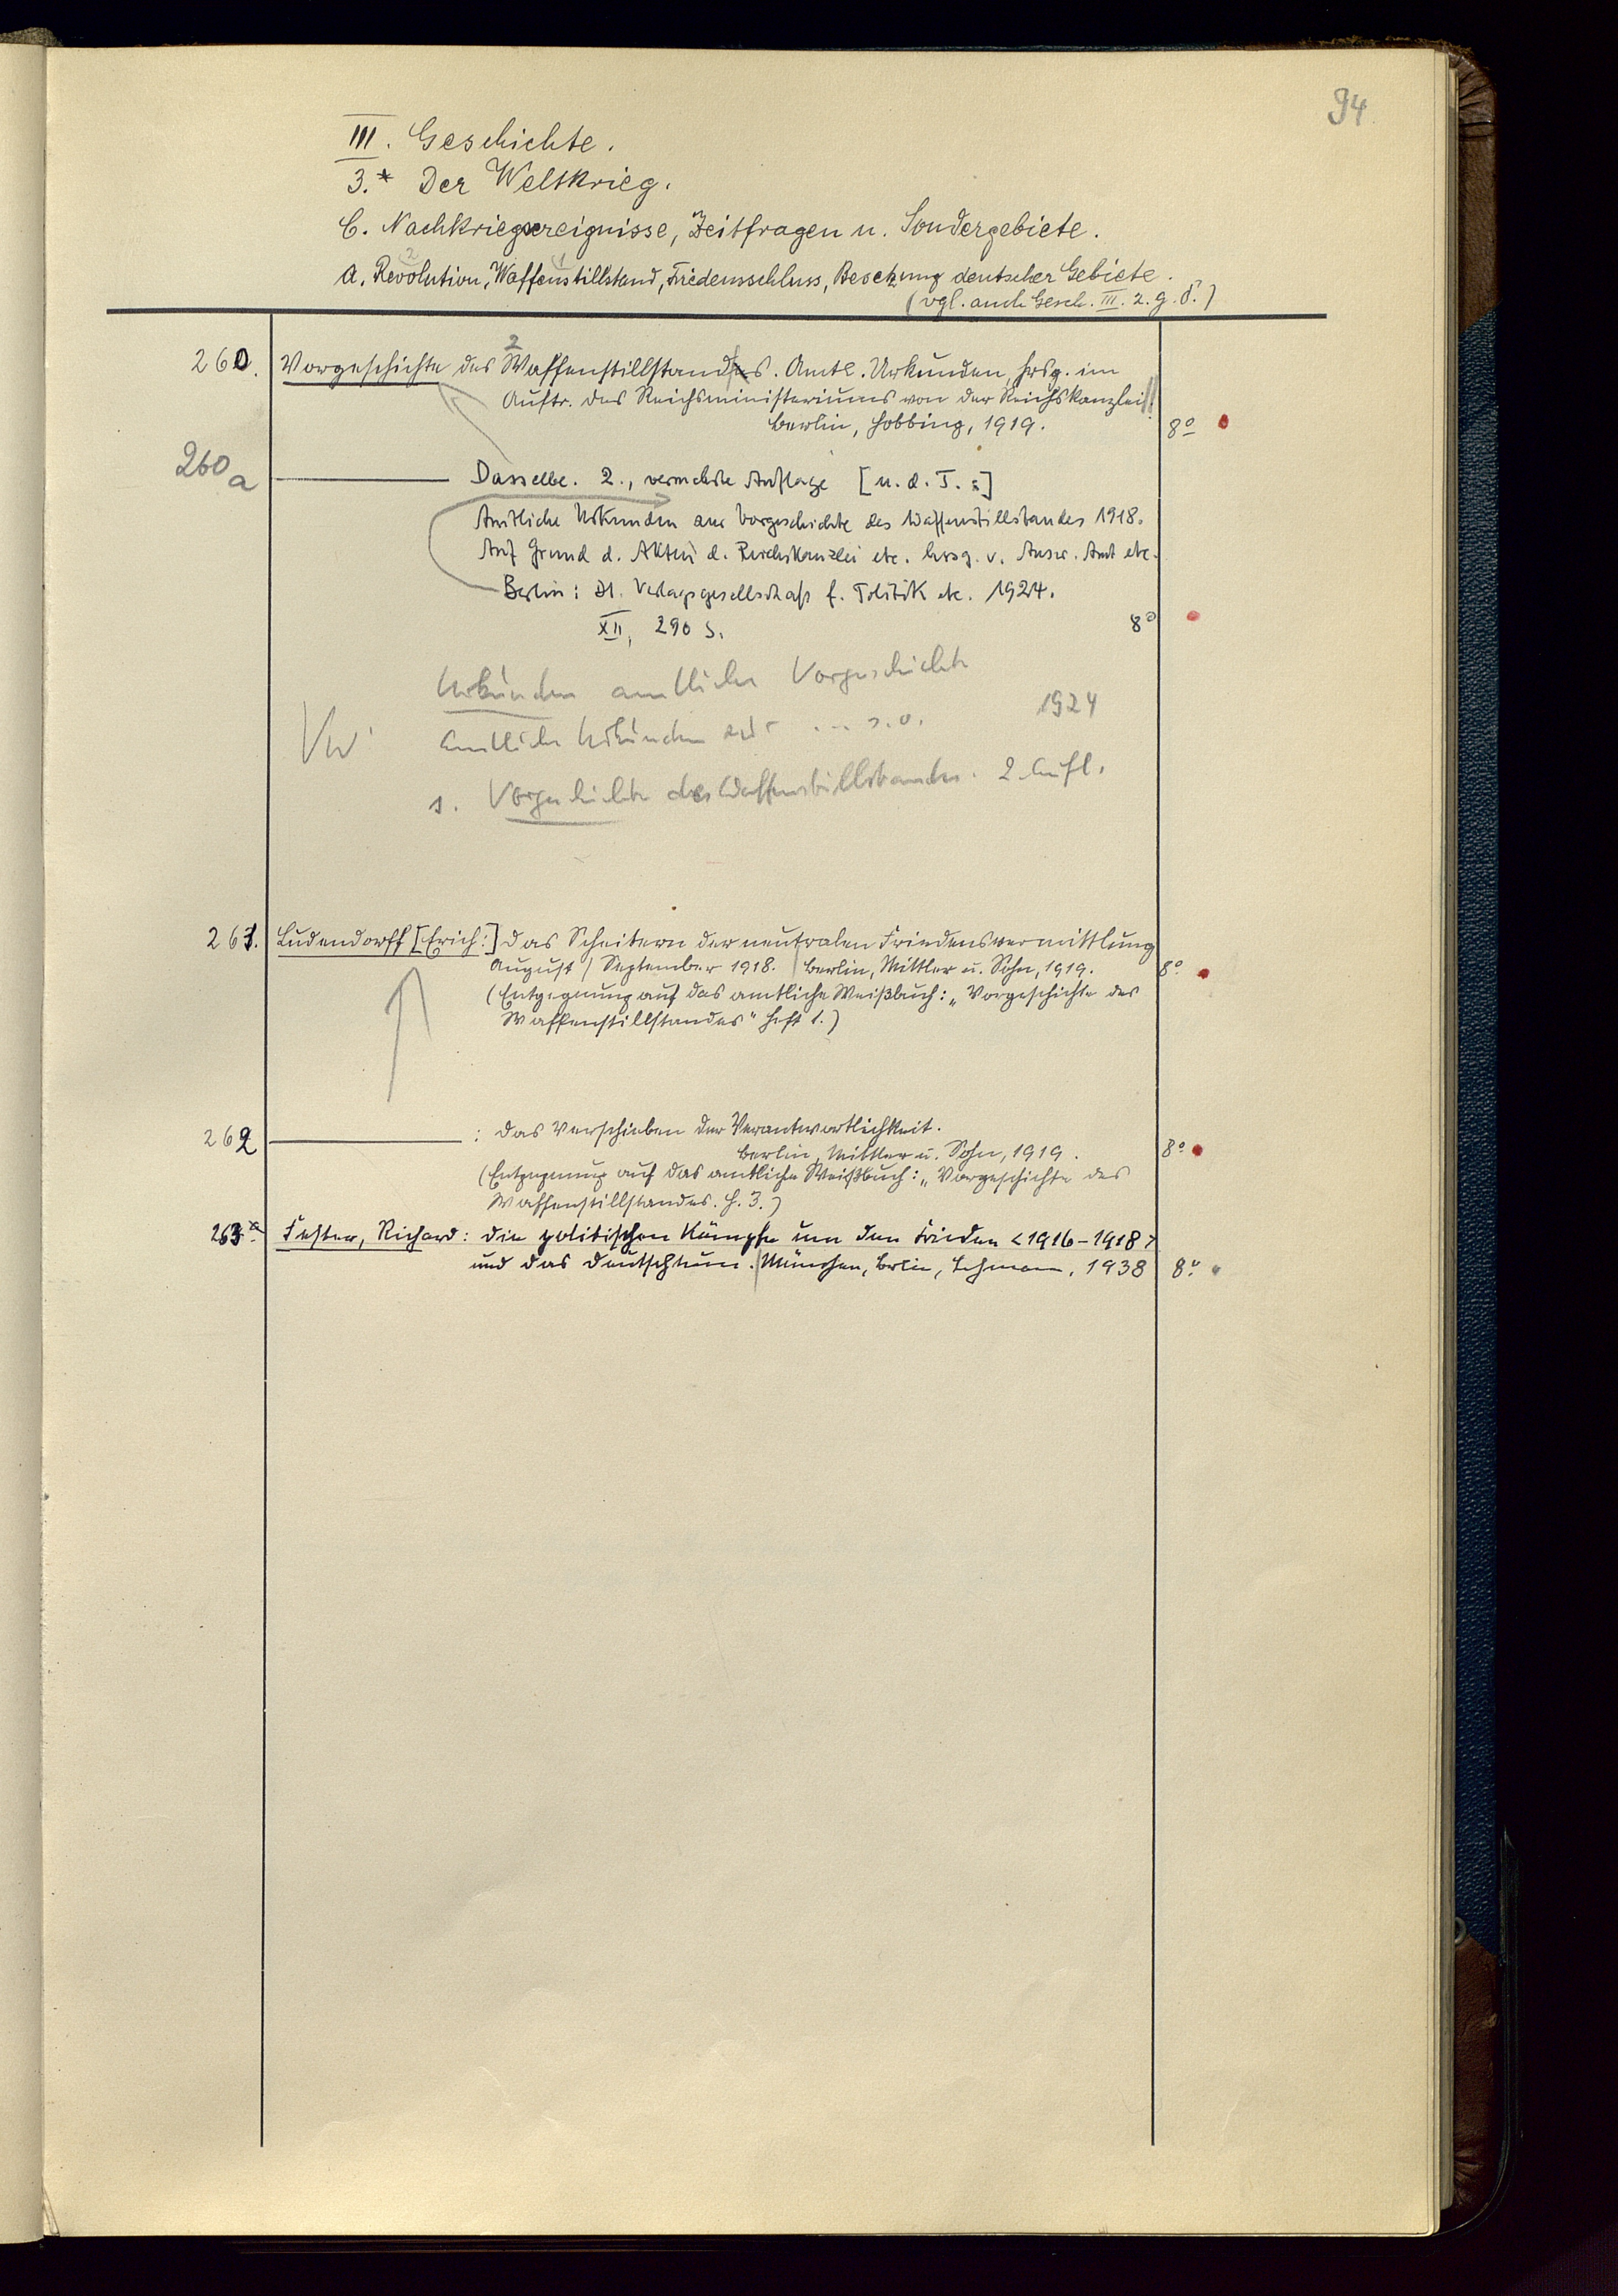 94
III. Geschichte.
3.* Der Weltkrieg.
C. Nachkriegsereignisse, Zeitfragen u. Sondergebiete.
a. Revolution, Waffenstillstand, Friedensschluss, Besetzung deutscher Gebiete.
(vgl. auch Gesch. III. 2. g. δ.)
260. Vorgeschichte des Waffenstillstandes. Amtl. Urkunden, hrsg. im
Auftr. des Reichsministeriums von der Reichskanzlei.
Berlin, Hobbing, 1919. 8°
260a Dasselbe. 2., vermehrte Auflage [u. d. T.:]
Amtliche Urkunden zur Vorgeschichte des Waffenstillstandes 1918.
Auf Grund d. Akten d. Reichskanzlei etc. hrsg. v. Ausw. Amt etc.
Berlin: Dt. Verlagsgesellschaft f. Politik etc. 1924.
XII, 290 S. 8°
Urkunden amtliche Vorgeschichte
VW Amtliche Urkunden zur ... s.o. 1924
s. Vorgeschichte des Waffenstillstandes. 2. Aufl.
261. Ludendorff [Erich:] Das Scheitern der neutralen Friedensvermittlung
August / September 1918. Berlin, Mittler u. Sohn, 1919. 8°
(Entgegnung auf das amtliche Weißbuch: „Vorgeschichte des
Waffenstillstandes" Heft 1.)
262 : Das Verschieben der Verantwortlichkeit.
Berlin, Mittler u. Sohn, 1919. 8°
(Entgegnung auf das amtliche Weißbuch: „Vorgeschichte des
Waffenstillstandes. H. 3.)
263 Fester, Richard: Die politischen Kämpfe um den Frieden <1916-1918>
und das Deutschtum. München, Berlin, Lehmann, 1938 8°